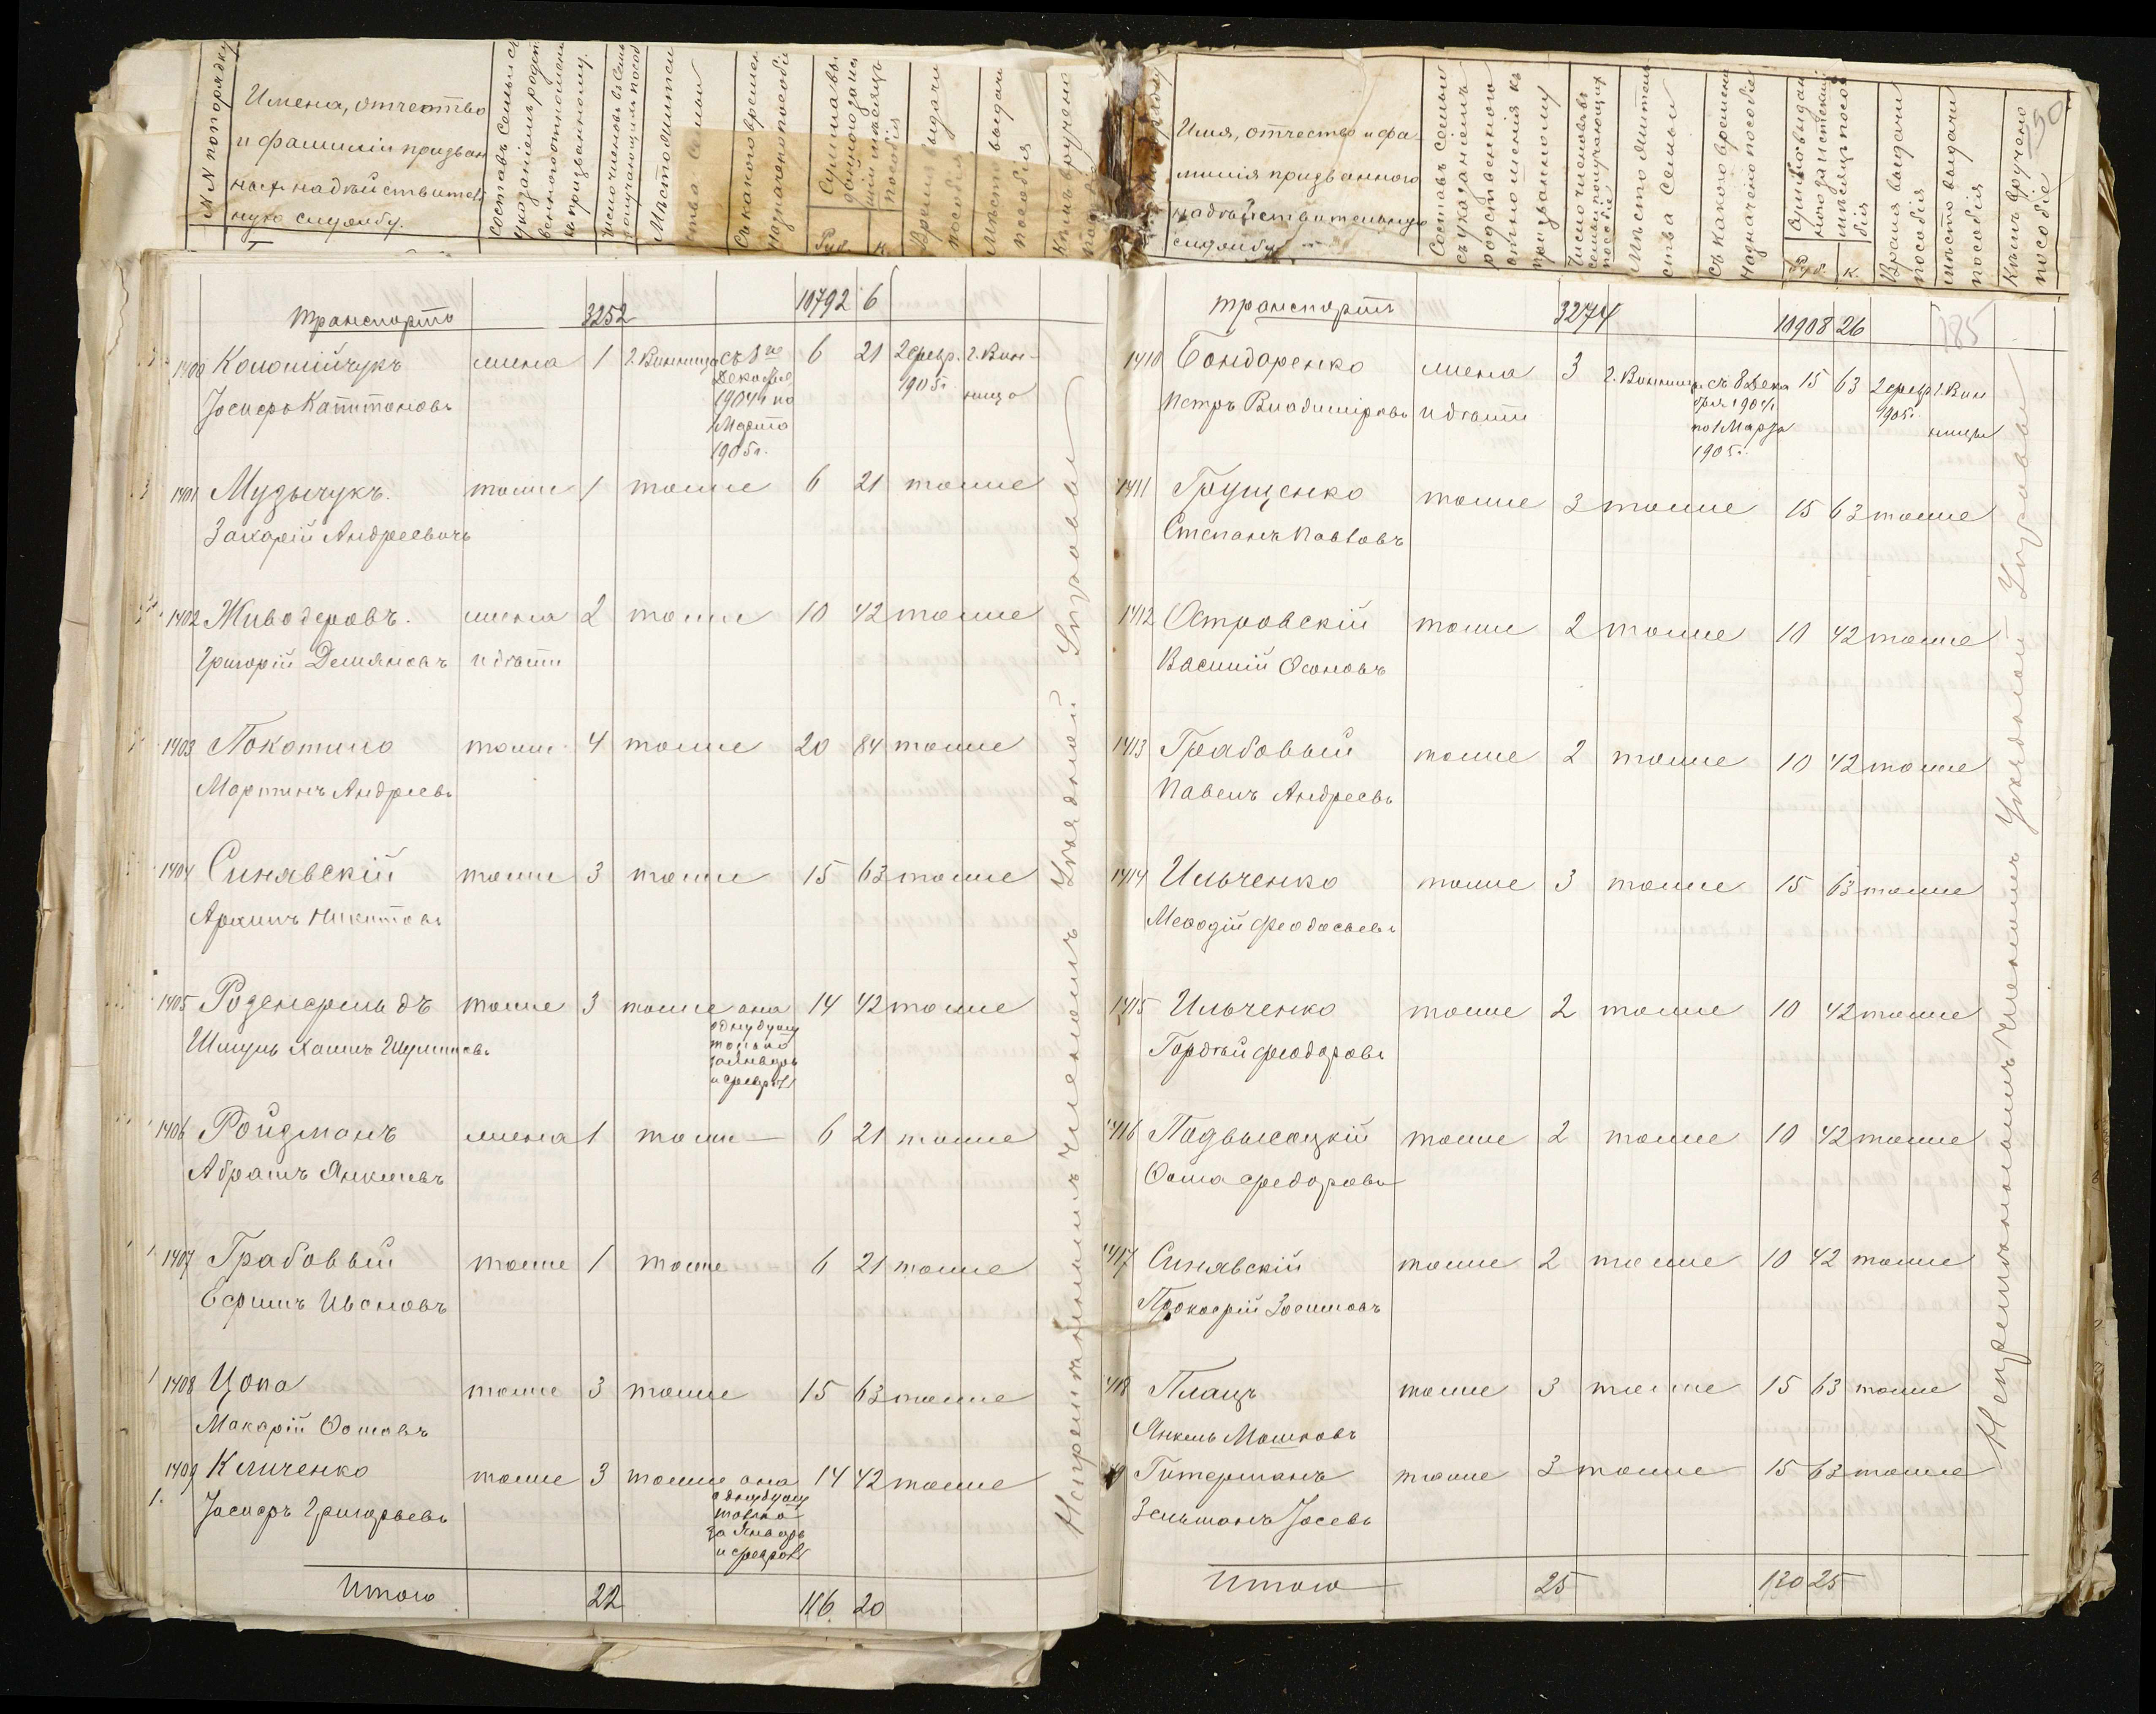 N N по порядку
Имена, отчество
и фамиліи призван
ныхъ на действитель
ную службу.
Составъ семьи съ
указаніемъ родст
веннаго отношенія
къ призванному.
Число членовъ въ семь
получающихъ пособ
Место жительства семьи
Съ какого времени
назначено пособіе
Руб.
к.
Время выдачи
пособія
Место выдачи
пособія
Кемъ вручено
Транспортъ 3252 10792 6
1400 Коломійчукъ жена 1 г. Винница съ 8го 6 21 2 февр. г. Вин-
Декабря 1905г. ница
Іосифъ Капитоновъ 1904 г. по
1 Марта
1905г.
1401 Музычукъ. тоже 1 тоже 6 21 тоже
Захарій Андреевичъ
1402 Живодеровъ. жена 2 тоже 10 42 тоже
Григорій Демяновъ и дѣти
1403 Покотило тоже 4 тоже 20 84 тоже
Мартинъ Андреевъ
1404 Синявскій тоже 3 тоже 15 63 тоже
Архипъ Никитовъ
1405 Розенфельдъ тоже 3 тоже она 14 42 тоже
одну душу
Шмуль Хаимъ только
за Январь
и февраль
1406 Ройзманъ жена 1 тоже 6 21 тоже
Абрамъ Янкелевъ
1407 Грабовый тоже 1 тоже 6 21 тоже
Ефимъ Ивановъ
1408 Цопа тоже 3 тоже 15 63 тоже
Макарій Фомовъ
1409 Кличенко тоже 3 тоже она 14 42 тоже
одну душу
Іосифъ Григорьевъ только
за Январь
и февраль
Итого 22 116 20
Непремѣннымъ членомъ Уѣздной Управы
Имя, отчество и фа-
милія призваннаго
на действительную
службу
Составъ семьи
съ указаніемъ
родственнаго
отношенія къ
призванному
Число членовъ
семьи получающихъ
пособіе
Место житель
ства семьи
Съ какого времени
назначено пособіе
Руб.
к.
Время выдачи
пособія
место выдачи
пособія
Кемъ вручено
пособіе
50
185
Транспортъ 3274 10908 26
1410 Бондаренко жена 3 г. Винница съ 8 Дека 15 63 2 февр г. Вин
бря 1904 г. 1905г. ница
Петръ Владиміровъ и дѣти по 1 Марта
1905г.
1411 Грущенко тоже 3 тоже 15 63 тоже
Степанъ Павловъ
1412 Островскій тоже 2 тоже 10 42 тоже
Василій
1413 Грабовый тоже 2 тоже 10 42 тоже
Павелъ Андреевъ
1414 Ильченко тоже 3 тоже 15 63 тоже
Меѳодій Феодосьевъ
1415 Ильченко тоже 2 тоже 10 42 тоже
Гордѣй Феодоровъ
1416 Подвысоцкій тоже 2 тоже 10 42 тоже
Фома Федоровъ
1417 Синявскій тоже 2 тоже 10 42 тоже
Прокофій Зосимовъ
1418 Плацъ тоже 3 тоже 15 63 тоже
Янкель Мошковъ
19 Гитерманъ тоже 3 тоже 15 63 тоже
Зельманъ Іосевъ
Итого 25 130 25
Непремѣннымъ членомъ Уѣздной Управы